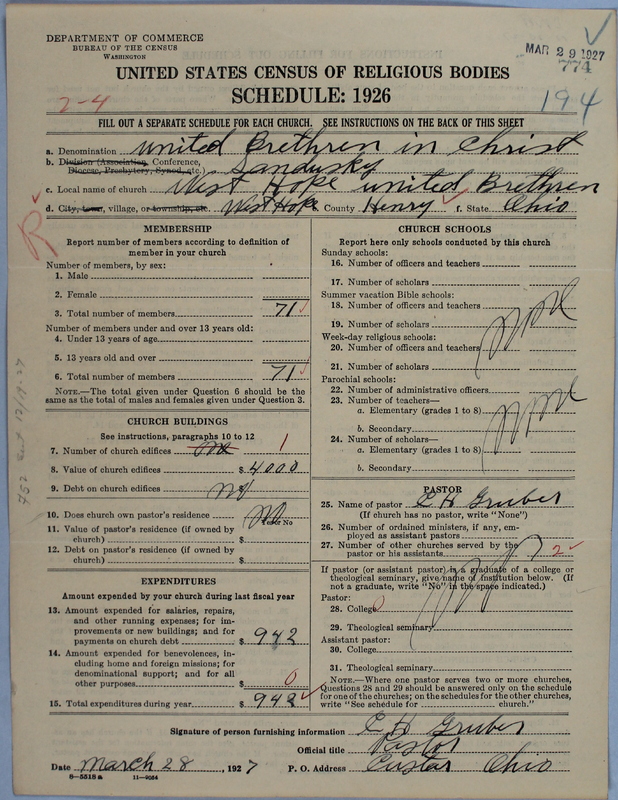 DEPARTMENT OF COMMERCE
BUREAU OF THE CENSUS
WASHINGTON
MAR 29 1927
774
UNITED STATES CENSUS OF RELIGIOUS BODIES
SCHEDULE: 1926
2-4
194
FILL OUT A SEPARATE SCHEDULE FOR EACH CHURCH. SEE INSTRUCTIONS ON THE BACK OF THIS SHEET
a. Denomination United Brethren in Christ
b. Division (Association, Conference, Diocese, Presbytery, Synod, etc.) Sandusky
c. Local name of church West Hope United Brethren
d. City, town, village, or township, etc. West Hope County Henry f. State Ohio
R
MEMBERSHIP
Report number of members according to definition of
member in your church
Number of members, by sex:
1. Male
2. Female
3. Total number of members 71
Number of members under and over 13 years old:
4. Under 13 years of age
5. 13 years old and over
6. Total number of members 71
NOTE.—The total given under Question 6 should be
the same as the total of males and females given under Question 3.
CHURCH BUILDINGS
See instructions, paragraphs 10 to 12
7. Number of church edifices 1
8. Value of church edifices $ 4000
9. Debt on church edifices $ no
10. Does church own pastor's residence No
Yes or No
11. Value of pastor's residence (if owned by
church) $
12. Debt on pastor's residence (if owned by
church) $
EXPENDITURES
Amount expended by your church during last fiscal year
13. Amount expended for salaries, repairs,
and other running expenses; for im-
provements or new buildings; and for
payments on church debt $ 942
14. Amount expended for benevolences, in-
cluding home and foreign missions; for
denominational support; and for all
other purposes $ 0
15. Total expenditures during year $ 942
CHURCH SCHOOLS
Report here only schools conducted by this church
Sunday schools:
16. Number of officers and teachers
17. Number of scholars
Summer vacation Bible schools:
18. Number of officers and teachers
19. Number of scholars
Week-day religious schools:
20. Number of officers and teachers
21. Number of scholars
none
Parochial schools:
22. Number of administrative officers
23. Number of teachers—
a. Elementary (grades 1 to 8)
b. Secondary
24. Number of scholars—
a. Elementary (grades 1 to 8)
b. Secondary
none
PASTOR
25. Name of pastor Gruber
(If church has no pastor, write "None")
26. Number of ordained ministers, if any, em-
ployed as assistant pastors
27. Number of other churches served by the
pastor or his assistants 2
If pastor (or assistant pastor) is a graduate of a college or
theological seminary, give name of institution below. (If
not a graduate, write "No" in the space indicated.)
Pastor:
28. College 0
29. Theological seminary
Assistant pastor:
30. College
31. Theological seminary
NOTE.—Where one pastor serves two or more churches,
Questions 28 and 29 should be answered only on the schedule
for one of the churches; on schedules for the other churches,
write "See schedule for church."
Signature of person furnishing information Gruber
Official title Pastor
Date March 28, 1927 P. O. Address Custar Ohio
8-5518 a 11-9054